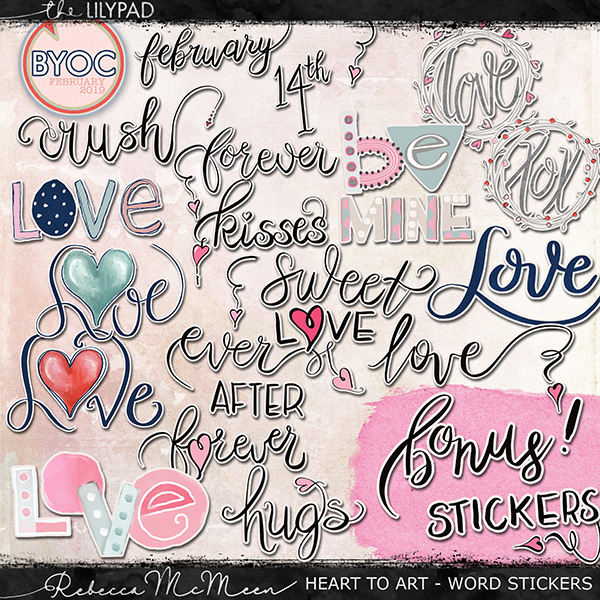 the LILYPAD
BYOC
FEBRUARY
2019
february
14th
love
crush
forever
be
xox
LOVE
kisses
MINE
Love
sweet
Love
LOVE
ever
love
Love
AFTER
forever
bonus!
LOVe
hugs
STICKERS
Rebecca McMeen HEART TO ART - WORD STICKERS